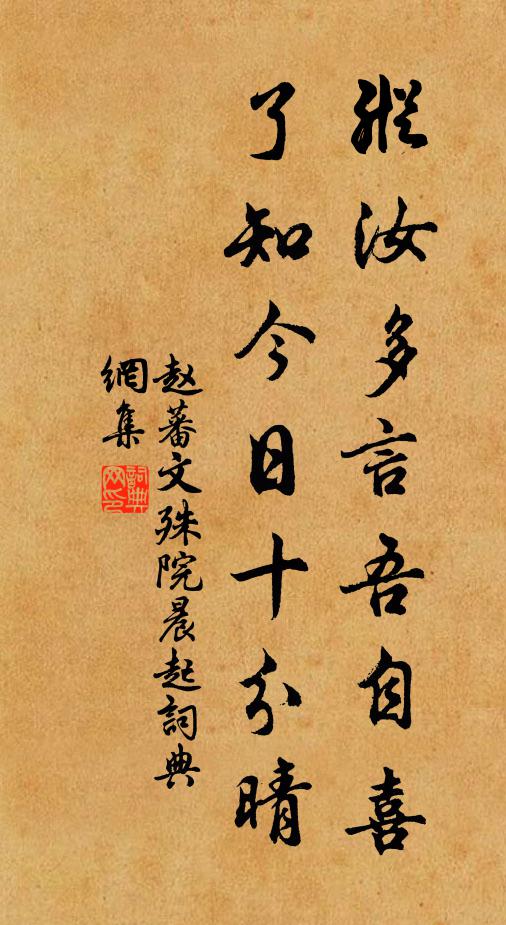 縱汝多言吾自喜
了知今日十分晴
赵蕃文殊院晨起詞典
網集
詞典
网印